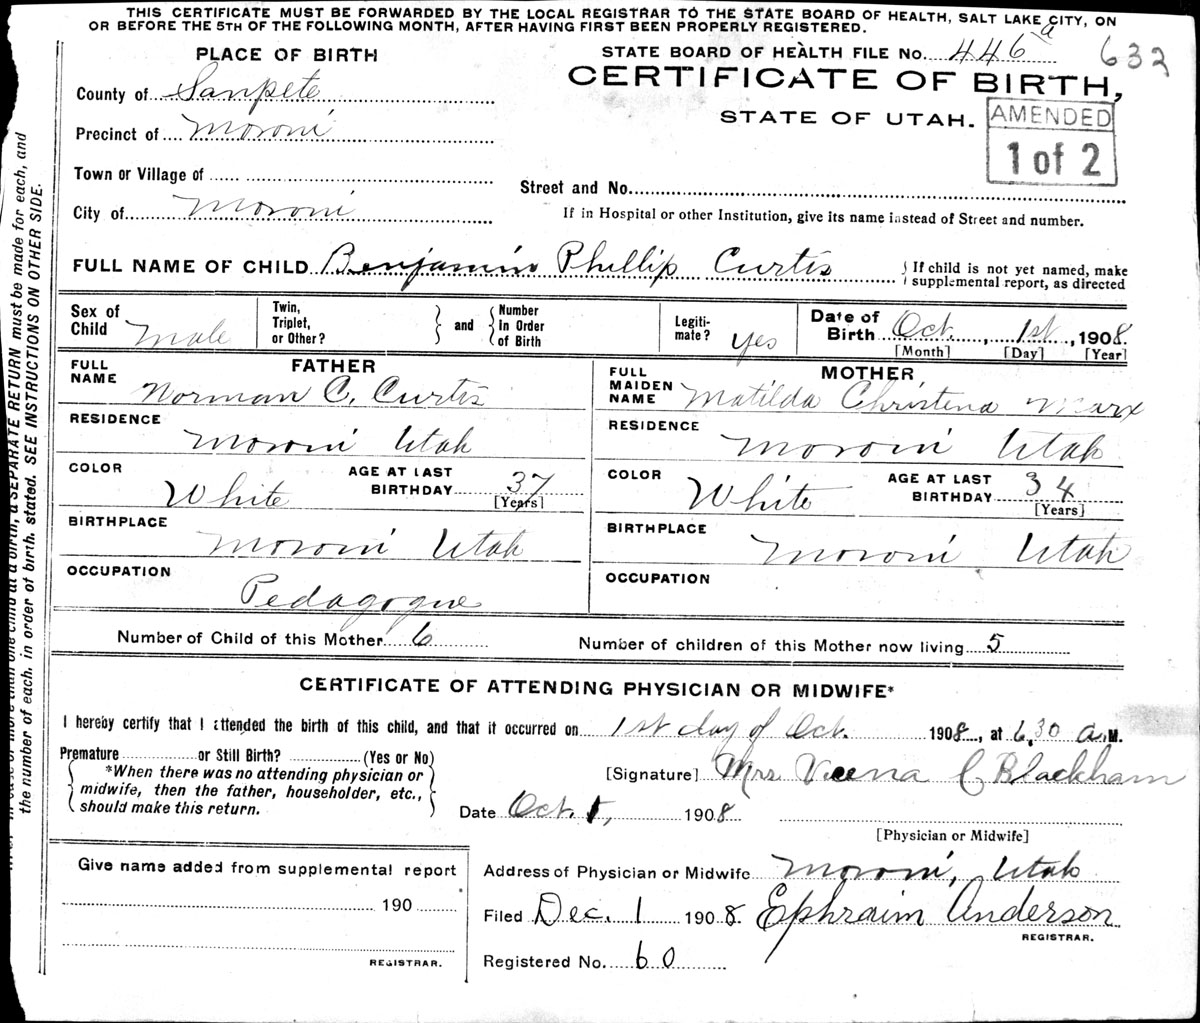 THIS CERTIFICATE MUST BE FORWARDED BY THE LOCAL REGISTRAR TO THE STATE BOARD OF HEALTH, SALT LAKE CITY, ON
OR BEFORE THE 5TH OF THE FOLLOWING MONTH, AFTER HAVING FIRST BEEN PROPERLY REGISTERED.
PLACE OF BIRTH
STATE BOARD OF HEALTH FILE No. 446 a 632
CERTIFICATE OF BIRTH,
STATE OF UTAH.
AMENDED
1 of 2
County of Sanpete
Precinct of Moroni
Town or Village of
City of Moroni
Street and No.
If in Hospital or other Institution, give its name instead of Street and number.
FULL NAME OF CHILD Benjamin Phillip Curtis
If child is not yet named, make
supplemental report, as directed
Sex of Child Male
Twin, Triplet, or Other?
and
Number In Order of Birth
Legiti-mate? Yes
Date of Birth Oct. 1st, 1908.
[Month] [Day] [Year]
FATHER
FULL NAME Norman C. Curtis
RESIDENCE Moroni Utah
COLOR White AGE AT LAST BIRTHDAY 37 [Years]
BIRTHPLACE Moroni Utah
OCCUPATION Pedagogue
MOTHER
FULL MAIDEN NAME Matilda Christena Marx
RESIDENCE Moroni Utah
COLOR White AGE AT LAST BIRTHDAY 34 [Years]
BIRTHPLACE Moroni Utah
OCCUPATION
Number of Child of this Mother 6 Number of children of this Mother now living 5
CERTIFICATE OF ATTENDING PHYSICIAN OR MIDWIFE*
I hereby certify that I attended the birth of this child, and that it occurred on 1st day of Oct. 1908, at 6,30 a.M.
Premature or Still Birth? (Yes or No)
*When there was no attending physician or
midwife, then the father, householder, etc.,
should make this return.
[Signature] Mrs Veena C Blackham
Date Oct. 1, 1908
[Physician or Midwife]
Give name added from supplemental report
190
REGISTRAR.
Address of Physician or Midwife Moroni, Utah
Filed Dec. 1 1908. Ephraim Anderson
REGISTRAR.
Registered No. 60
than one child at a birth, a SEPARATE RETURN must be made for each, and
the number of each, in order of birth, stated. SEE INSTRUCTIONS ON OTHER SIDE.